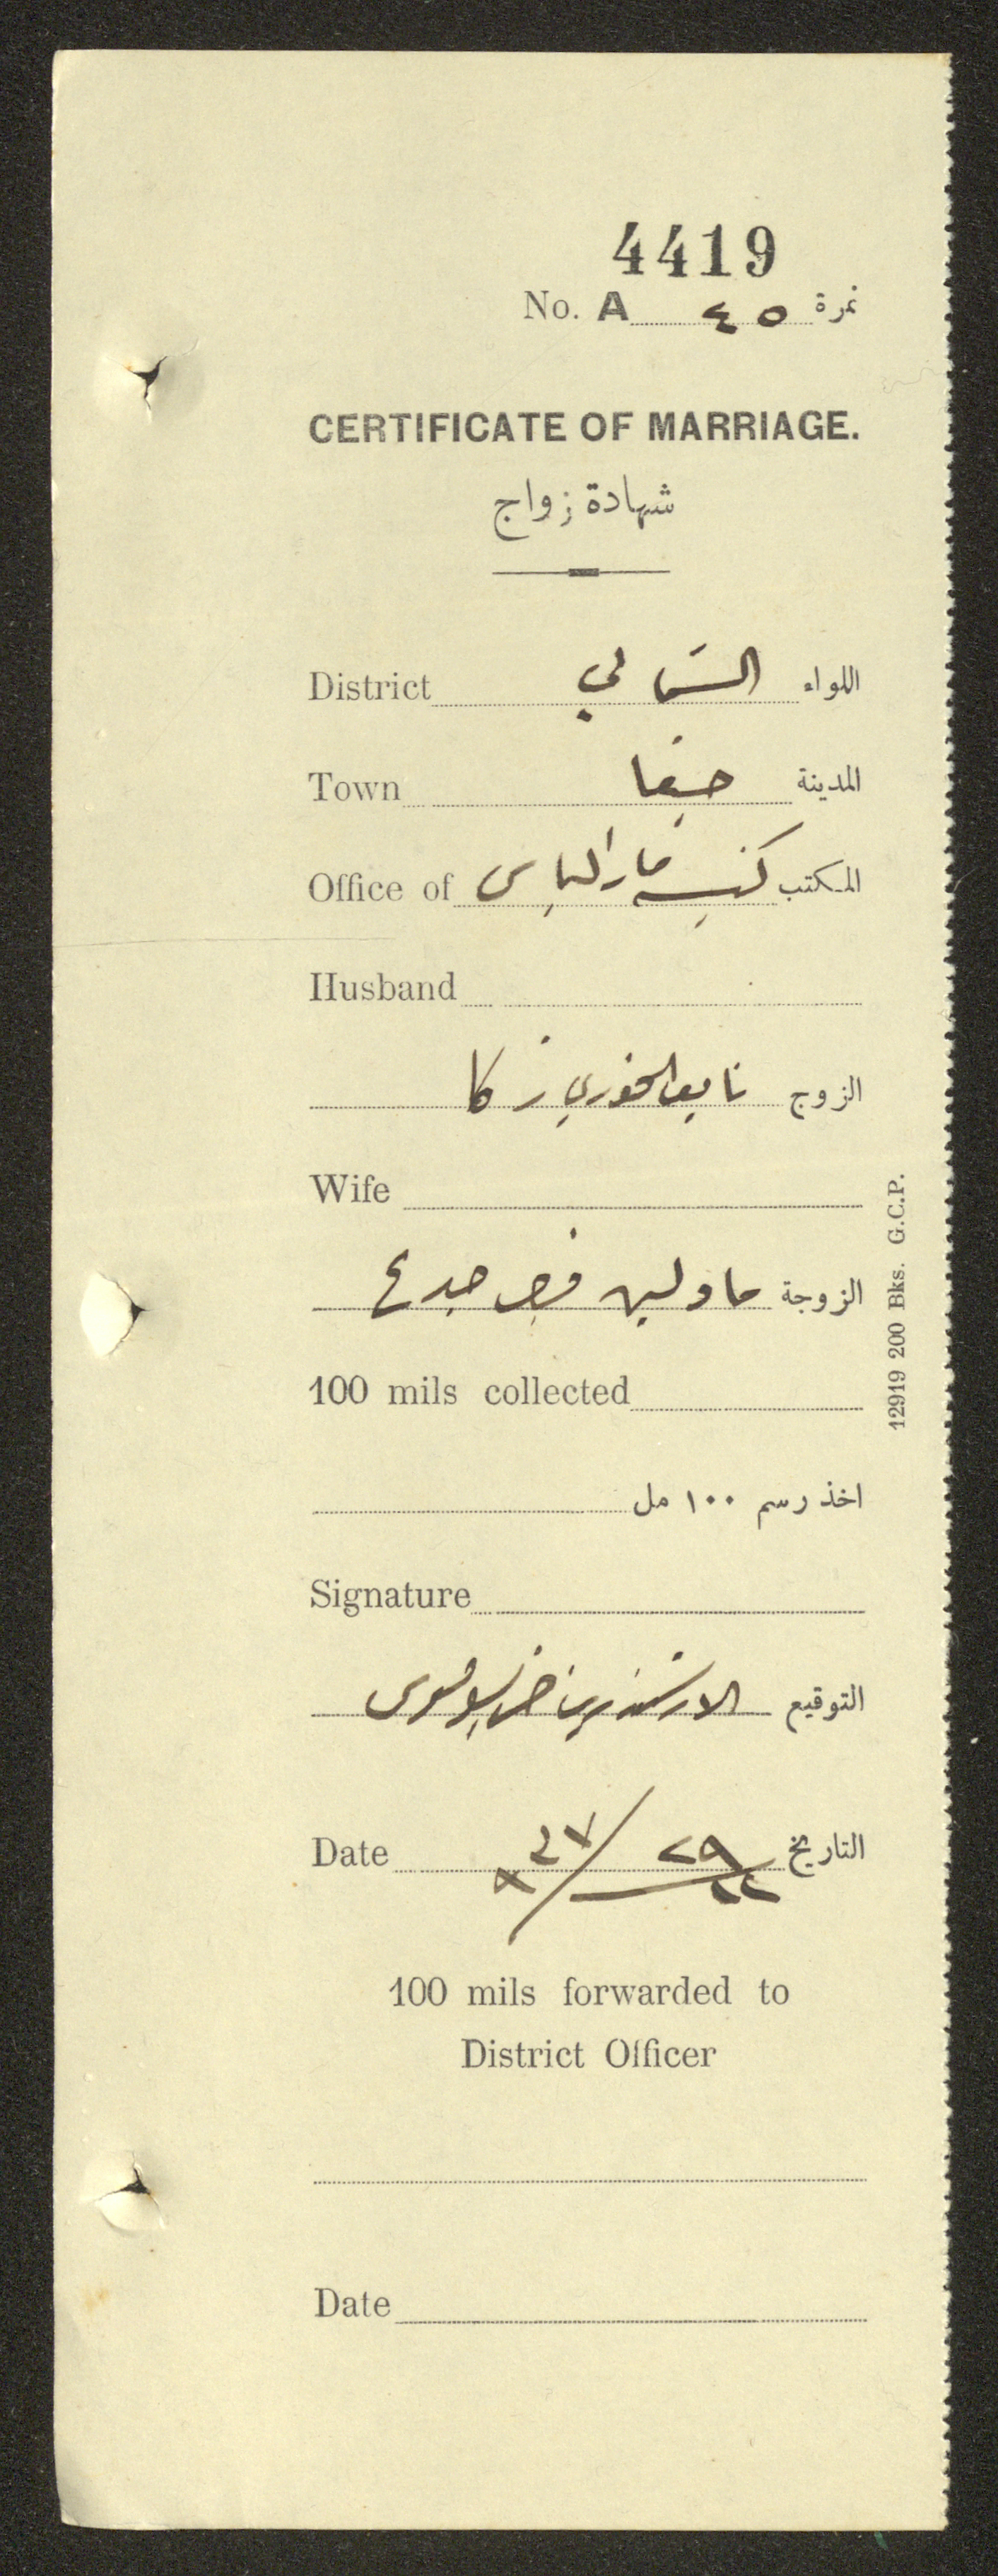 4419
No. A ٤٥ نمرة
CERTIFICATE OF MARRIAGE.
شهادة زواج
District الشمالي اللواء
Town حيفا المدينة
Office of كنيسة مار الياس المكتب
Husband
الزوج نايف الخوري زكا
Wife
الزوجة جدع
100 mils collected
اخذ رسم ١٠٠ مل
Signature
التوقيع الارشمندريت
Date التاريخ ٢٩
100 mils forwarded to
District Officer
Date
12919 200 Bks. G.C.P.